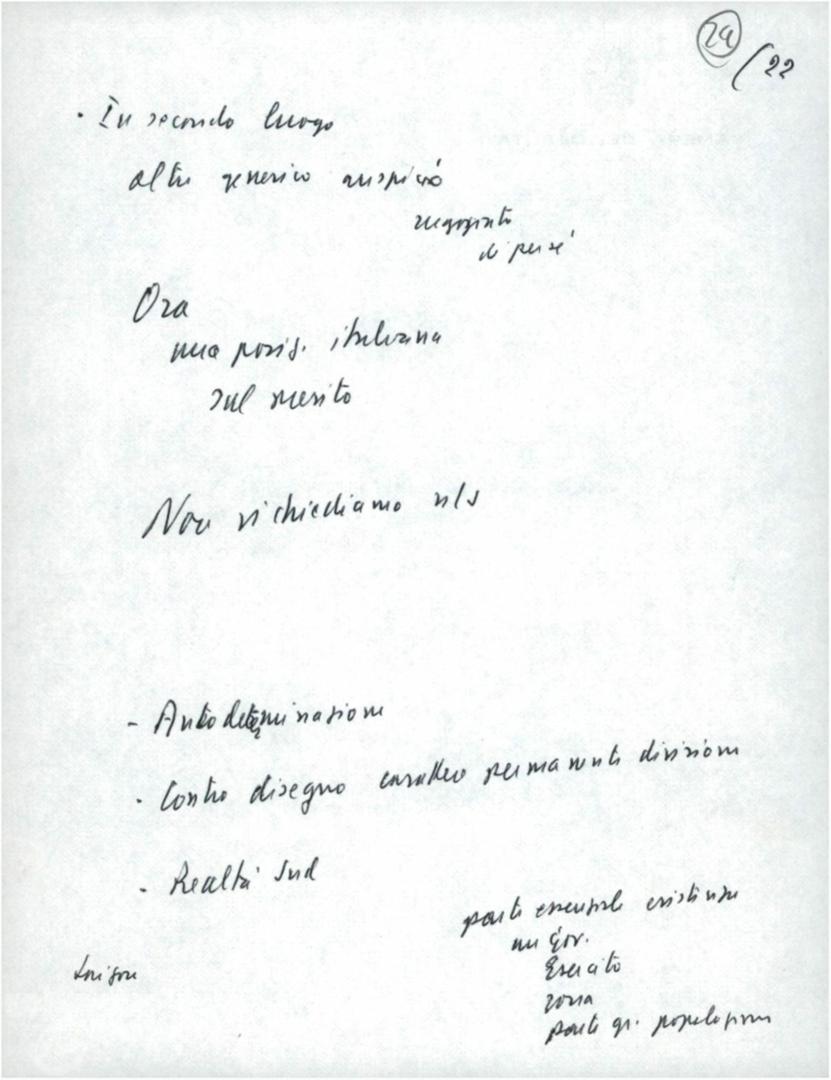 24
/22
· In secondo luogo
oltre generico auspicio
negoziato
di per sé
Ora
una posiz. italiana
sul merito
Non richiediamo
- Autodeterminazione
· Contro disegno carattere permanente divisione
- Realtà Sud
parte essenziale esistenza
un Gov.
Esercito
zona
parte gr. popolazione